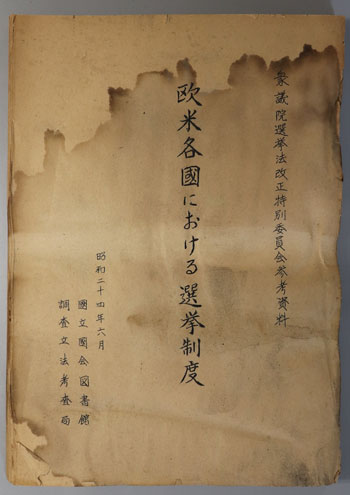 衆議院選挙法改正特別委員会参考資料
欧米各國における選挙制度
昭和二十四年六月
國立國会図書館
調査立法考査局